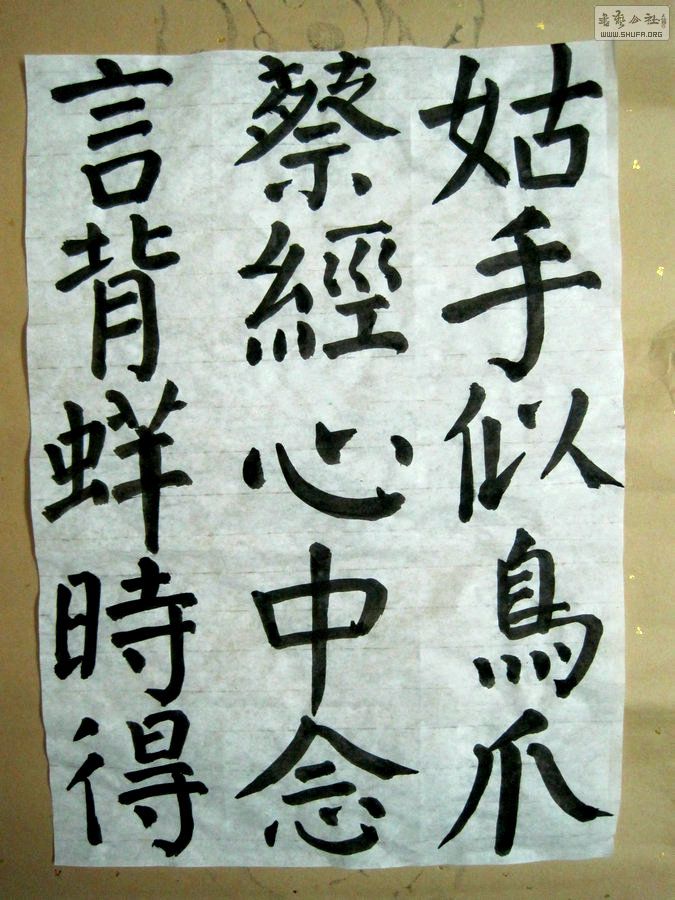 姑手似鳥爪
蔡經心中念
言背蛘時得
WWW.SHUFA.ORG